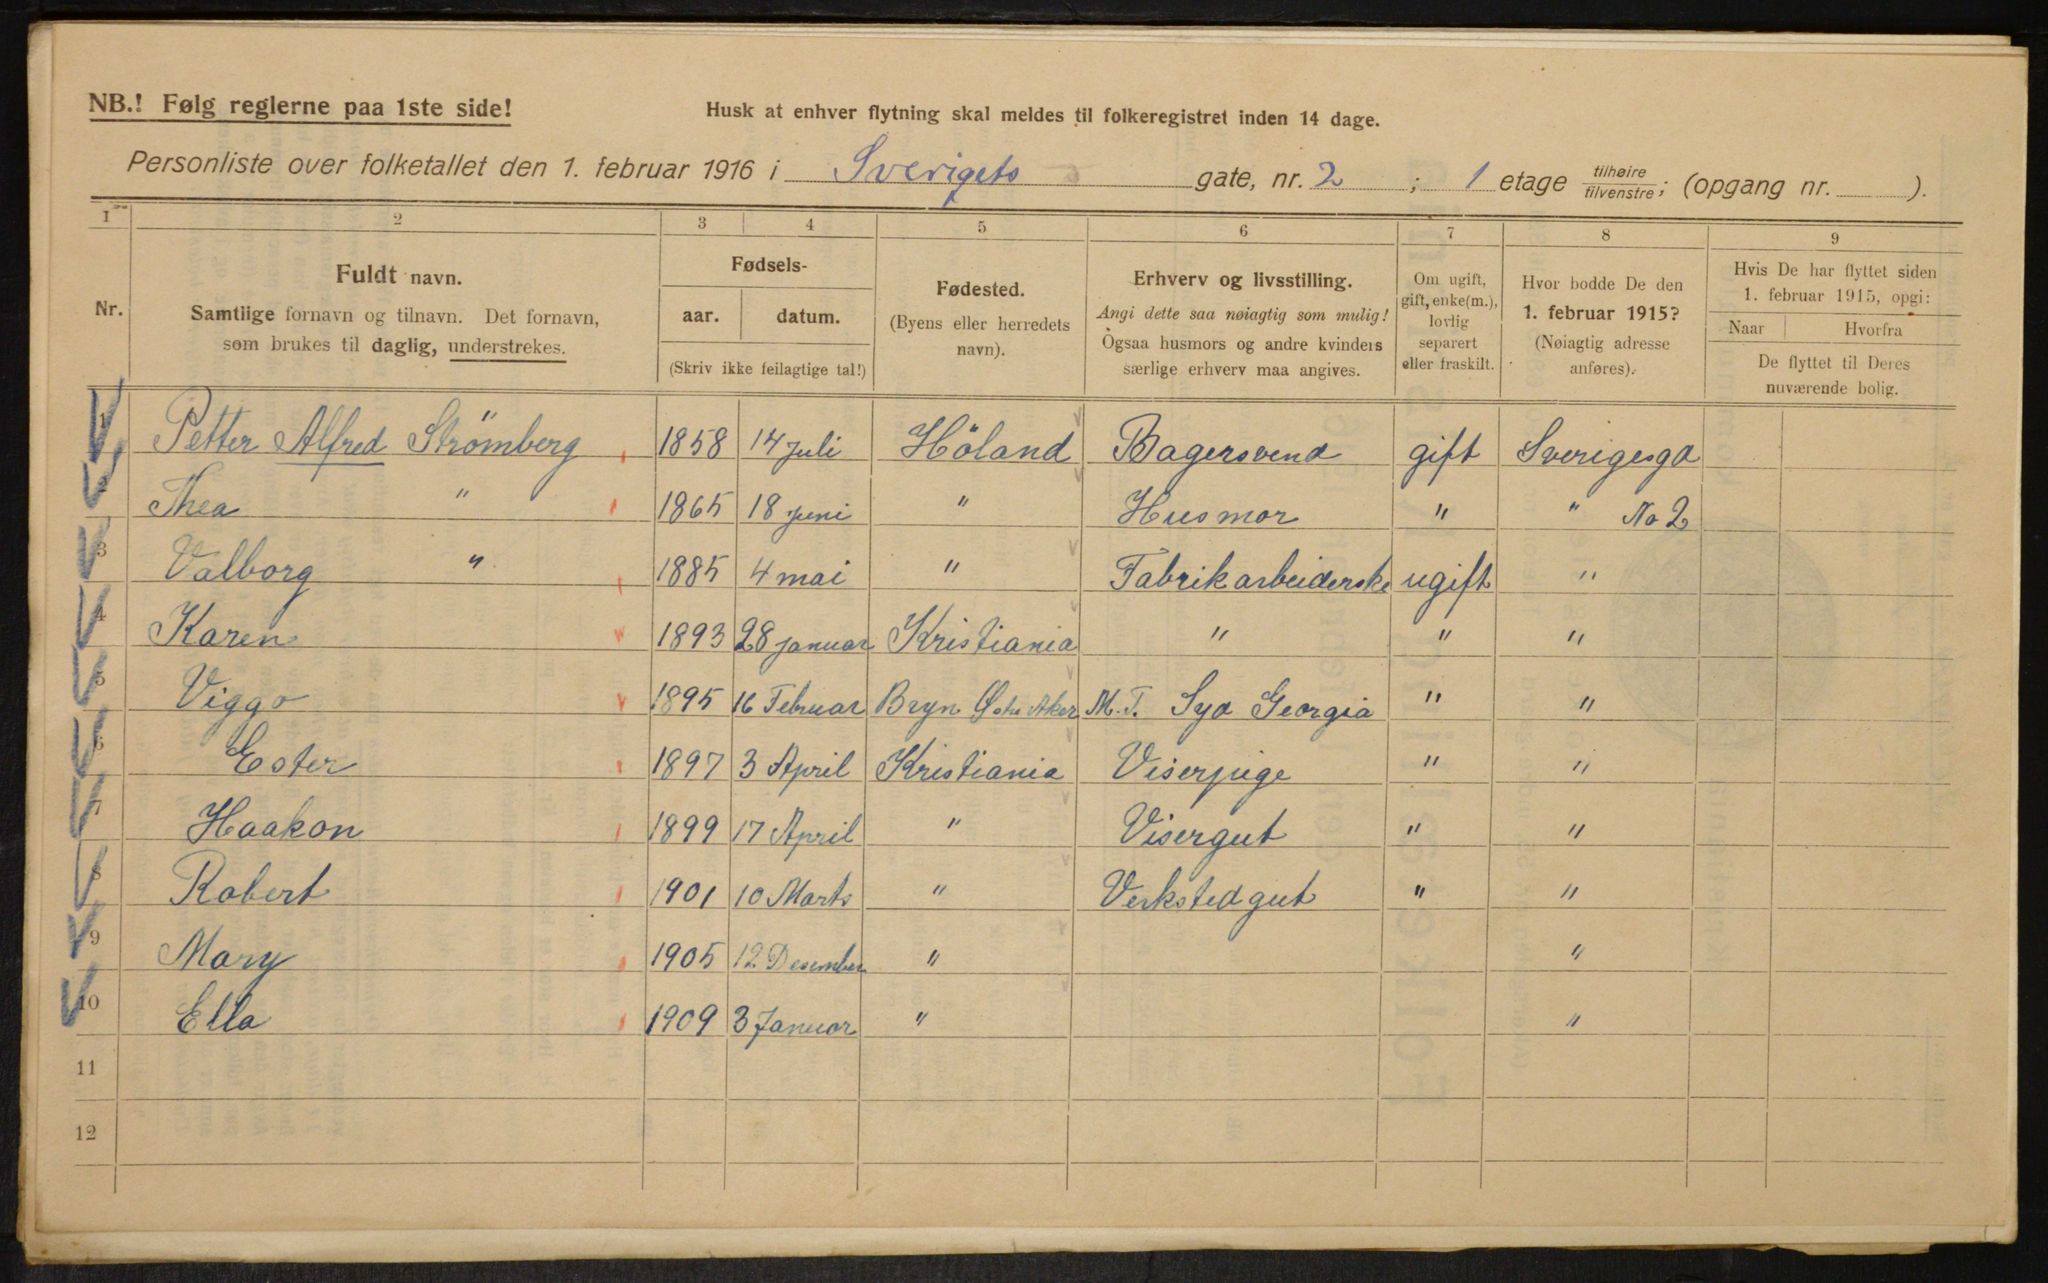 NB.! Følg reglerne paa 1ste side!
Husk at enhver flytning skal meldes til folkeregistret inden 14 dage.
Personliste over folketallet den 1. februar 1916 i Sverigets gate, nr. 2 ; 1 etage tilhøire / tilvenstre ; (opgang nr. ).
1 2 3 4 5 6 7 8 9
Nr.
Fuldt navn.
Samtlige fornavn og tilnavn. Det fornavn,
som brukes til daglig, understrekes.
Fødsels-
aar. datum.
(Skriv ikke feilagtige tal!)
Fødested.
(Byens eller herredets
navn).
Erhverv og livsstilling.
Angi dette saa nøiagtig som mulig!
Ogsaa husmors og andre kvinders
særlige erhverv maa angives.
Om ugift,
gift, enke(m.),
lovlig
separert
eller fraskilt.
Hvor bodde De den
1. februar 1915?
(Nøiagtig adresse
anføres).
Hvis De har flyttet siden
1. februar 1915, opgi:
Naar Hvorfra
De flyttet til Deres
nuværende bolig.
1 Petter Alfred Strømberg 1858 14 Juli Höland Bagersvend gift Sverigesgd
2 Thea " 1865 18 juni " Husmor " " No 2
3 Valborg " 1885 4 mai " Fabrikarbeiderske ugift "
4 Karen 1893 28 januar Kristiania " " "
5 Viggo 1895 16 Februar Bryn Aker M. T. Syd Georgia " "
6 Ester 1897 3 April Kristiania Viserpige " "
7 Haakon 1899 17 April " Visergut " "
8 Robert 1901 10 Marts " Verkstedgut " "
9 Mary 1905 12 Desember " "
10 Ella 1909 3 Januar " "
11
12